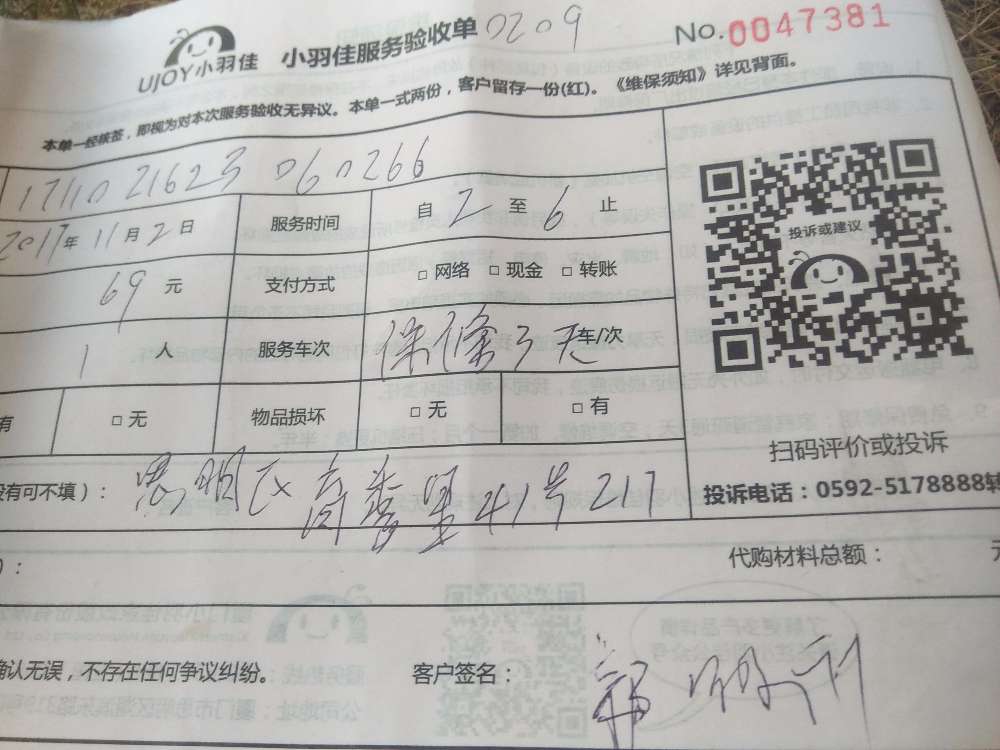 UJOY小羽佳 小羽佳服务验收单 0209 No.0047381
本单一经核签，即视为对本次服务验收无异议。本单一式两份，客户留存一份(红)。《维保须知》详见背面。
1711021623 060266
2017年11月2日 服务时间 自2至6止
投诉或建议
69元 支付方式 □网络 □现金 □转账
1人 服务车次 保修3天车/次
有 □无 物品损坏 □无 □有
扫码评价或投诉
没有可不填）： 思明区 41号217
投诉电话：0592-5178888转
）： 代购材料总额： 元
确认无误，不存在任何争议纠纷。 客户签名：